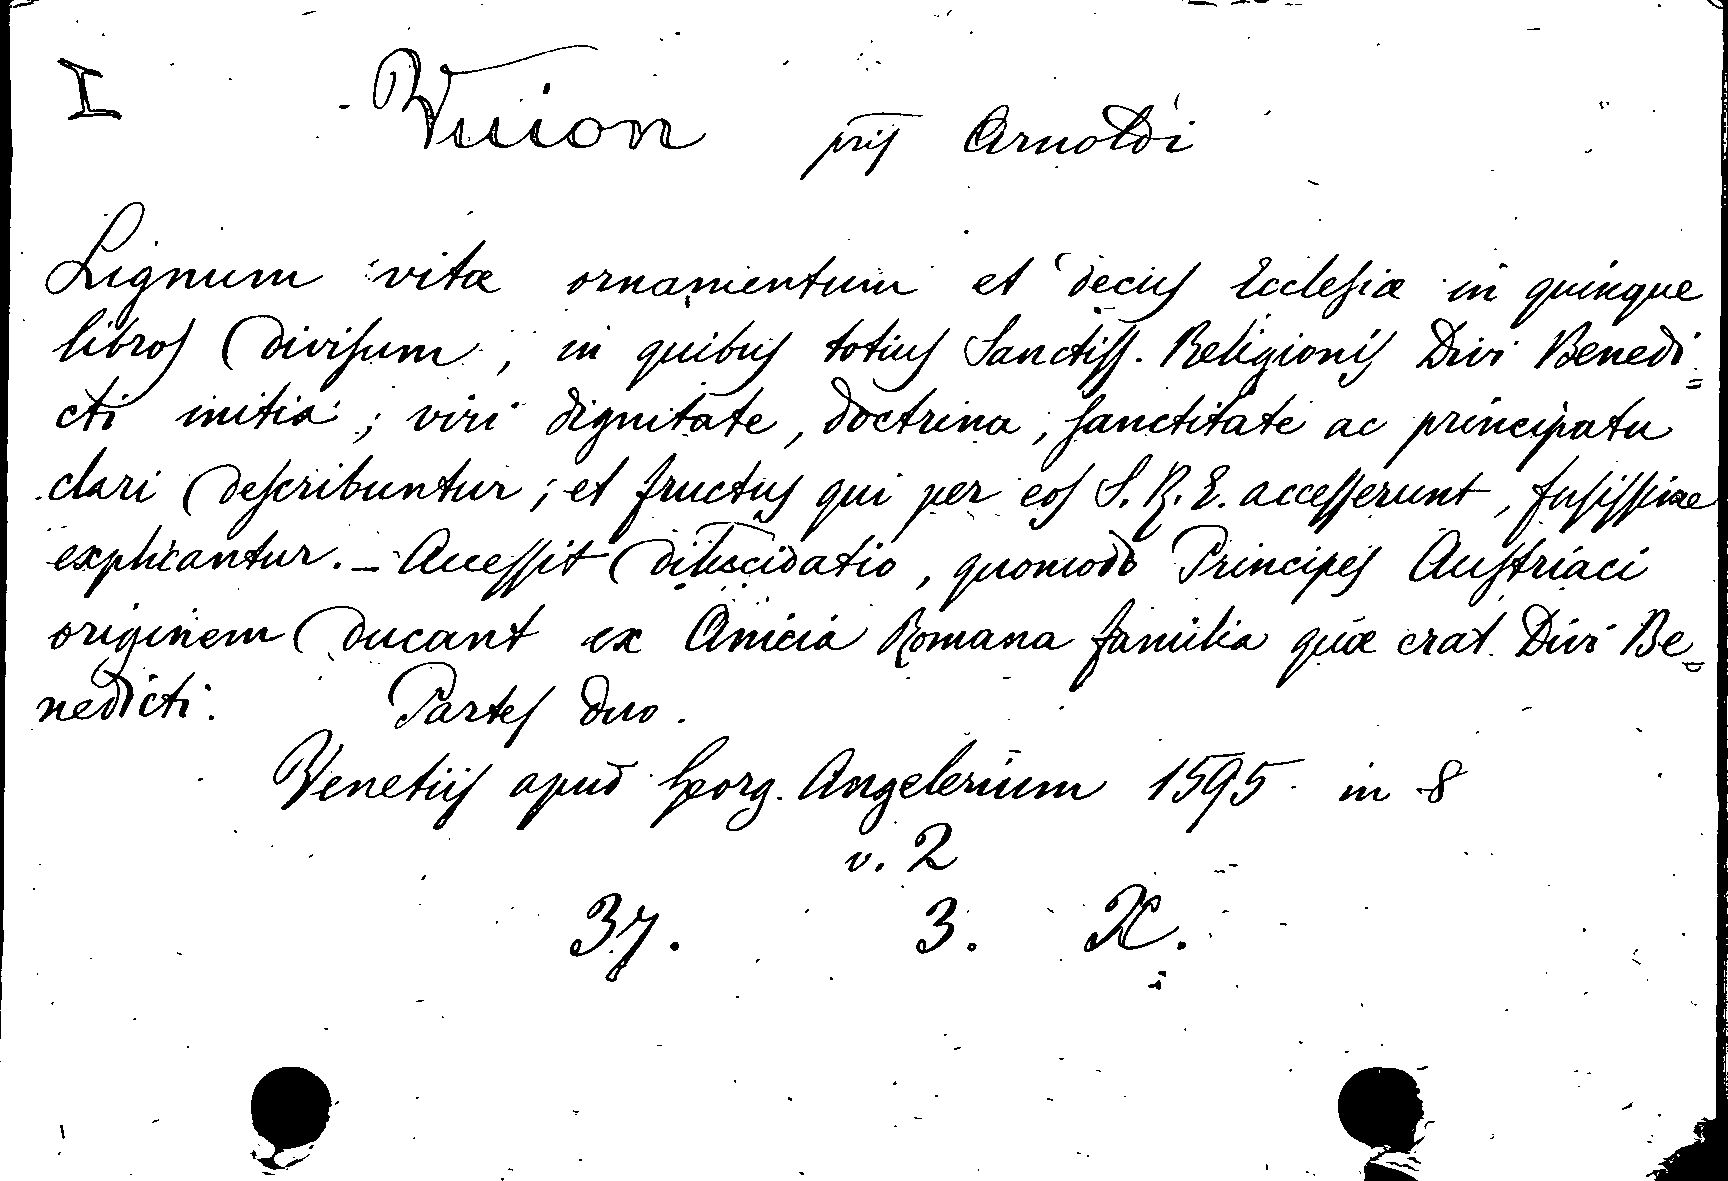 I Wuion pris Arnoldi
Lignum vitæ ornamentum et decus Ecclesiæ in quinque
libros divisum, in quibus totius Sanctiss. Religionis Divi Benedi=
cti initia; viri dignitate, doctrina, sanctitate ac principatu
clari describuntur; et fructus qui per eos S. R. E. accesserunt, fusissime
explicantur. – Accessit dilucidatio, quomodo Principes Austriaci
originem ducant ex Anicia Romana familia quæ erat Divi Be=
nedicti. Partes duo.
Venetiis apud Georg. Angelerium 1595 in 8
v. 2
37. 3. X.